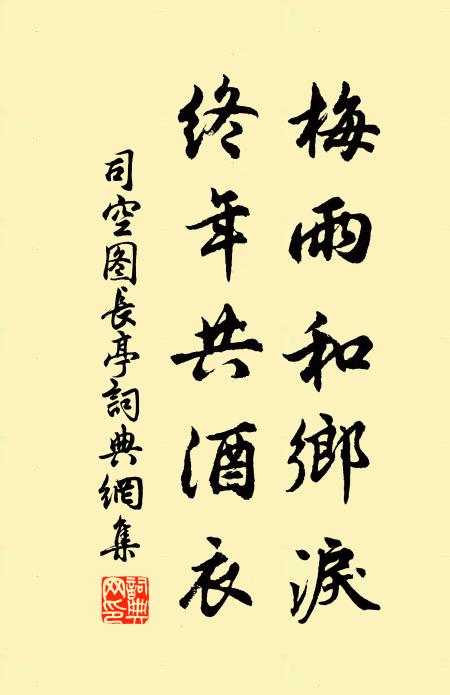 梅雨和鄉淚
終年共酒衣
司空图長亭詞典網集
詞典网印